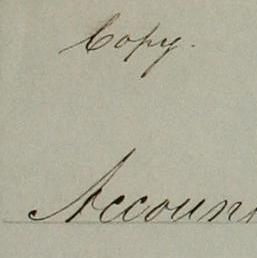 Copy.
Accoun